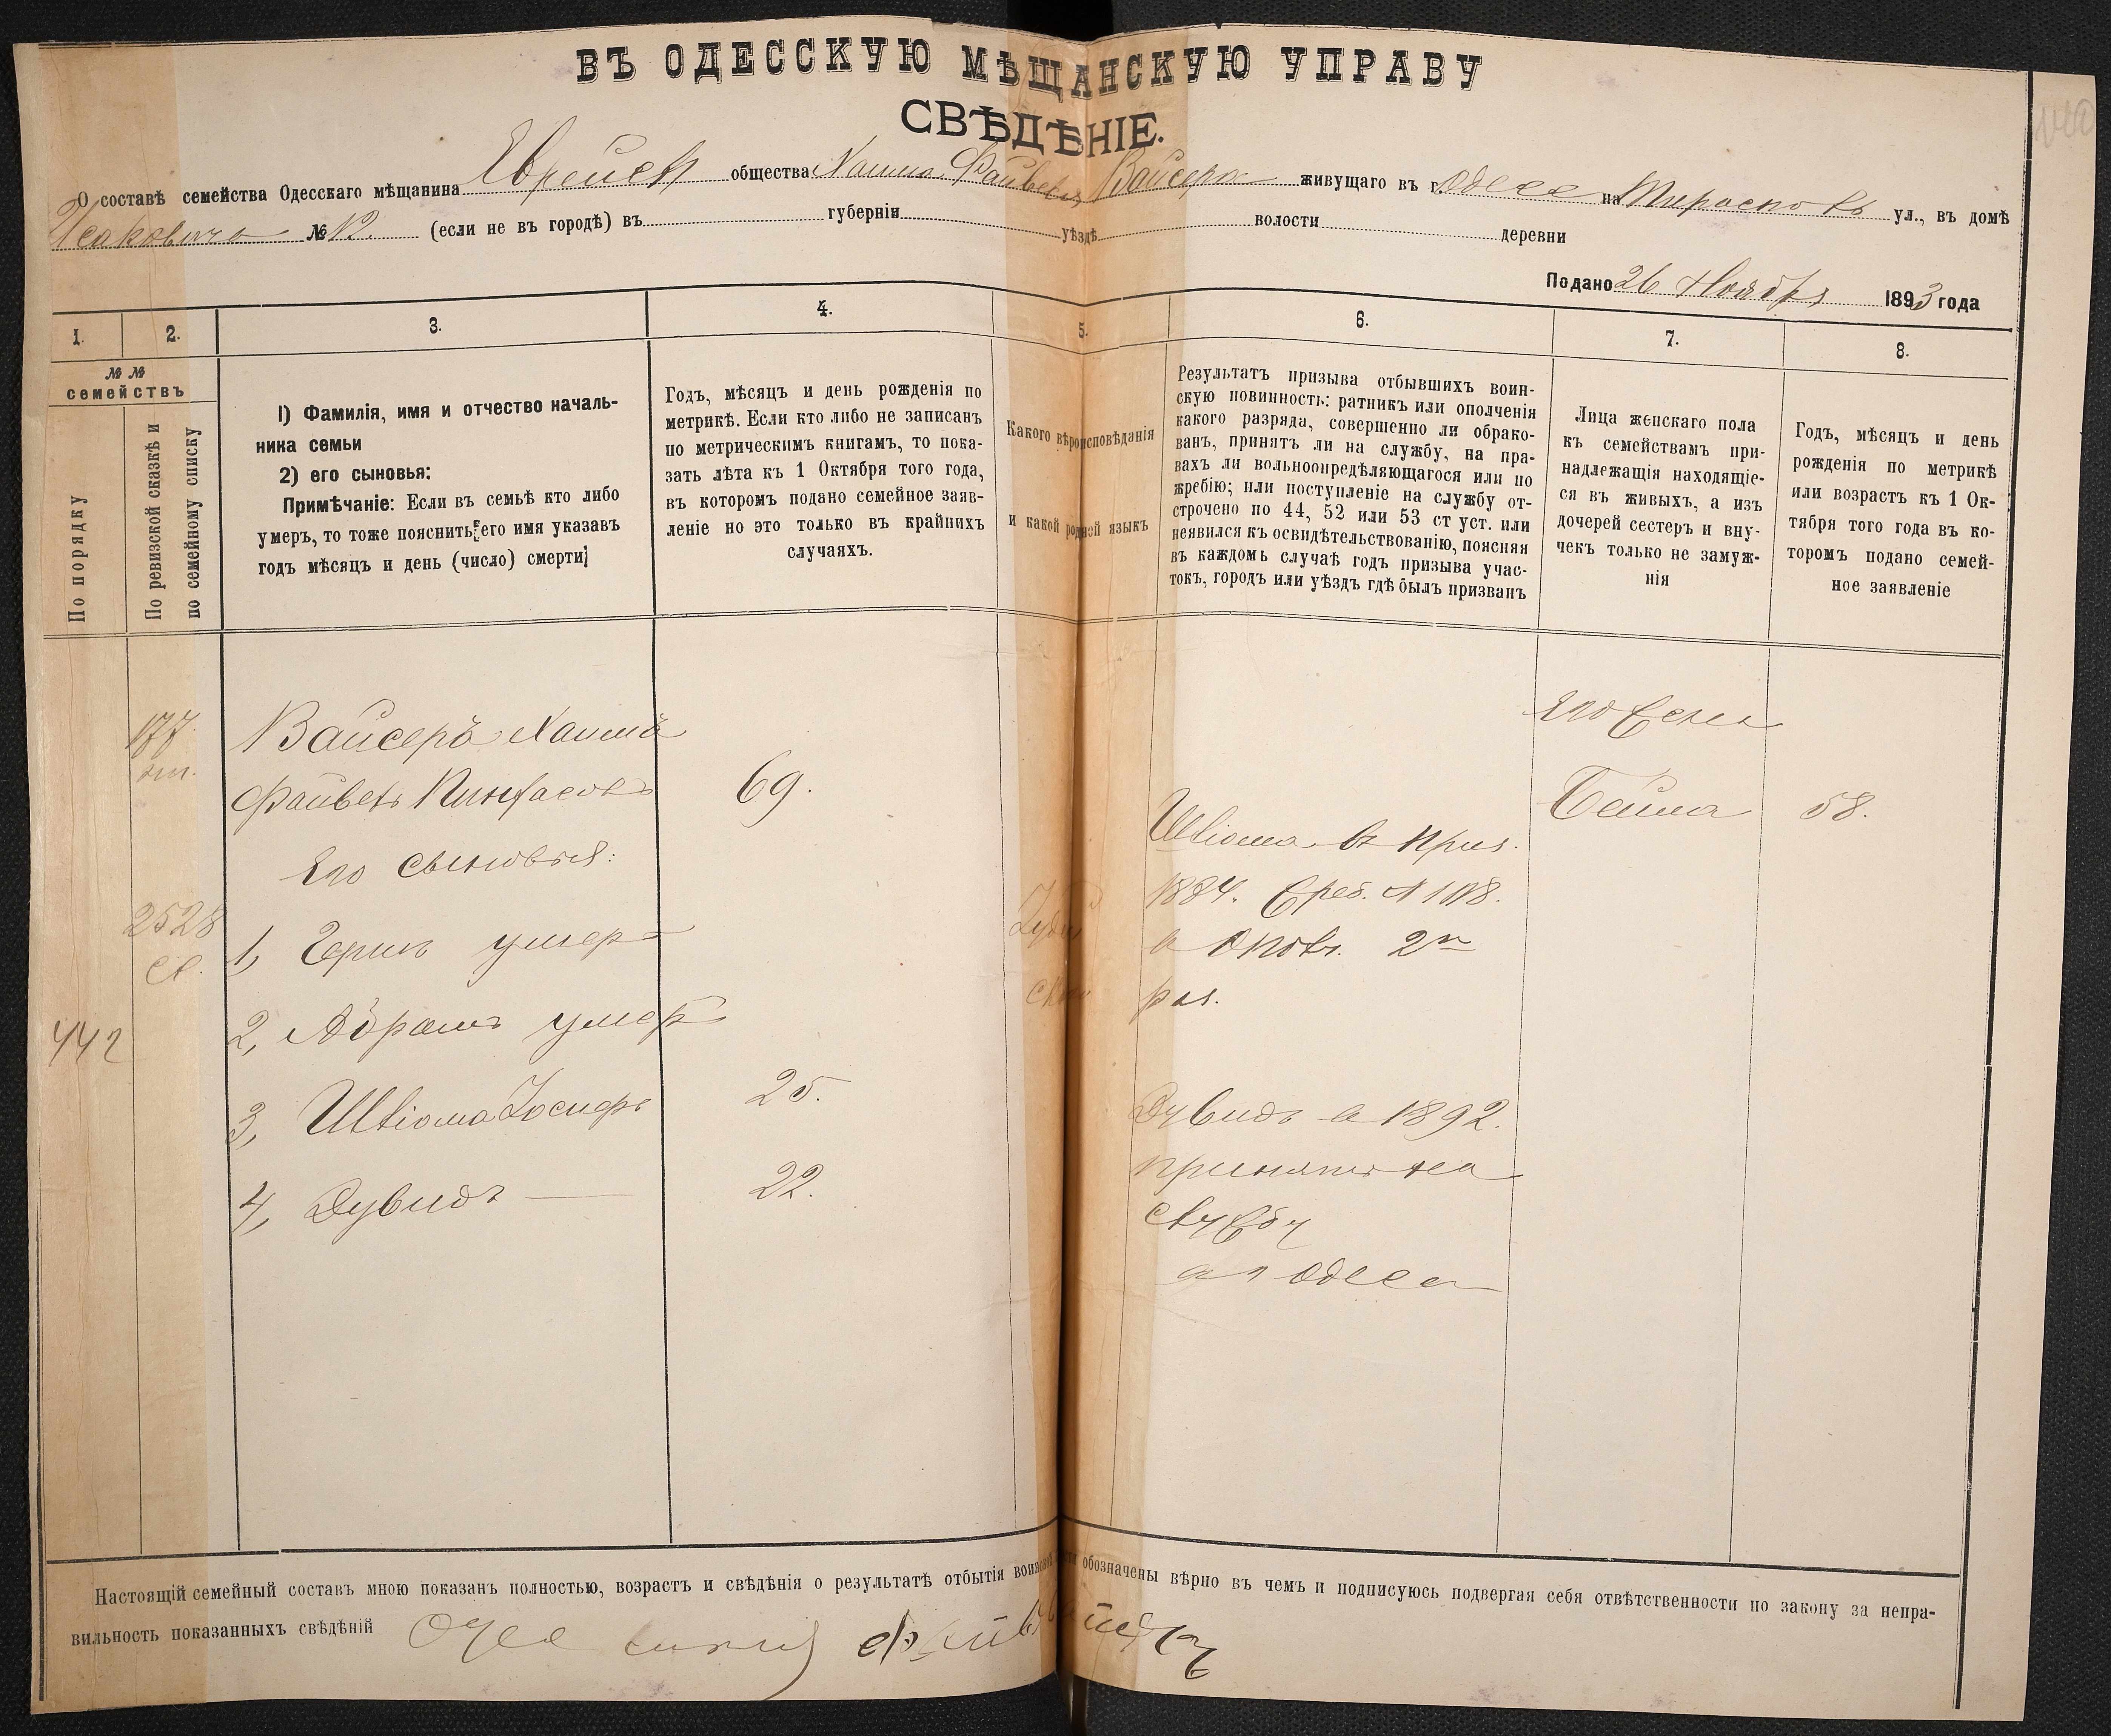 ВЪ ОДЕССКУЮ МѢЩАНСКУЮ УПРАВУ
СВѢДѢНІЕ.
О составѣ семейства Одесскаго мѣщанина Еврейск общества Хаима Файвеля Вайсера живущаго въ г. Одесе на Тираспо ул., въ домѣ
Исаковича № 12. (если не въ городѣ) въ губерніи уѣздѣ волости деревни
Подано 26 Ноября 1893 года
1. 2. 3. 4. 5. 6. 7. 8.
№ №
семействъ
По порядку
По ревизской сказкѣ и
по семейному списку
1) Фамилія, имя и отчество началь-
ника семьи
2) его сыновья:
Примѣчаніе: Если въ семьѣ кто либо
умеръ, то тоже пояснить его имя указавъ
годъ мѣсяцъ и день (число) смерти
Годъ, мѣсяцъ и день рожденія по
метрикѣ. Если кто либо не записанъ
по метрическимъ книгамъ, то пока-
зать лѣта къ 1 Октября того года,
въ которомъ подано семейное заяв-
леніе но это только въ крайнихъ
случаяхъ.
Какого вѣроисповѣданія
и какой родной языкъ
Результатъ призыва отбывшихъ воин-
скую повинность: ратникъ или ополченія
какого разряда, совершенно ли обрако-
ванъ, принятъ ли на службу, на пра-
вахъ ли вольноопредѣляющагося или по
жребію; или поступленіе на службу от-
строчено по 44, 52 или 53 ст уст. или
неявился къ освидѣтельствованію, поясняя
въ каждомъ случаѣ годъ призыва учас-
токъ, городъ или уѣздъ гдѣ былъ призванъ
Лица женскаго пола
къ семействамъ при-
надлежащія находящіе-
ся въ живыхъ, а изъ
дочерей сестеръ и вну-
чекъ только не замуж-
нія
Годъ, мѣсяцъ и день
рожденія по метрикѣ
или возрастъ къ 1 Ок-
тября того года въ ко-
торомъ подано семей-
ное заявленіе
177
Вайсеръ Хаимъ
Файвель Пинхасовъ 69.
Его сыновья:
2528
1, Герш умеръ
2, Абрамъ умеръ
442
3, Шліома Іосифъ 25.
4, Дувидъ — 22.
Іудей
ское
Шліома въ приз.
1884. Жреб. № 1118.
в ополч. 2го
раз.
Дувидъ в 1892.
принятъ на
службу
в г Одеса
его жена
Бейла 58.
Настоящій семейный составъ мною показанъ полностью, возрастъ и свѣдѣнія о результатѣ отбытія воинской обозначены вѣрно въ чемъ и подписуюсь подвергая себя отвѣтственности по закону за непра-
вильность показанныхъ свѣдѣній